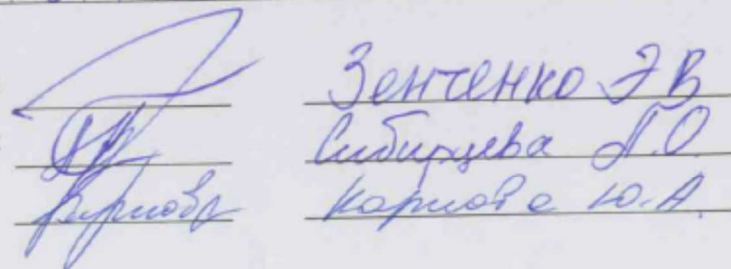 Зенченко Э В
Сибирцева А.О.
Карпова Ю.А.